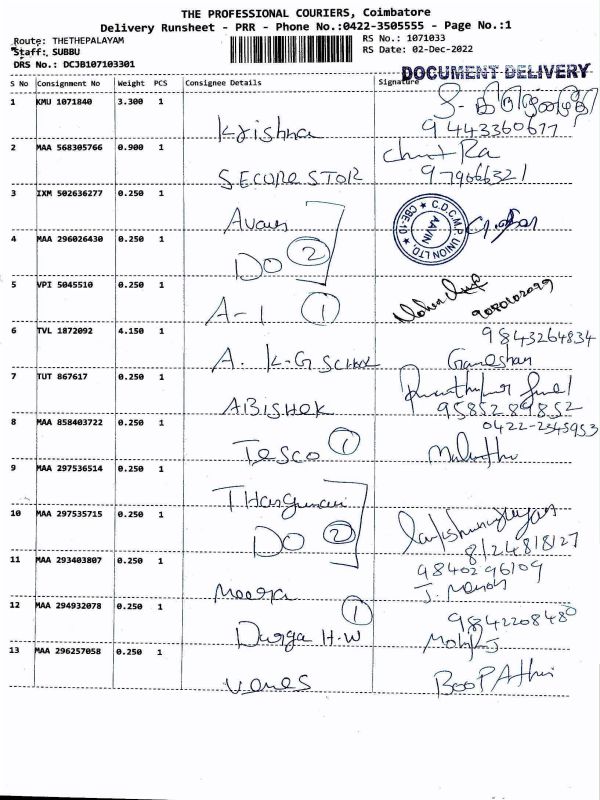 THE PROFESSIONAL COURIERS, Coimbatore
Delivery Runsheet - PRR - Phone No.:0422-3505555 - Page No.:1
Route: THETHEPALAYAM RS No.: 1071033
Staff: SUBBU RS Date: 02-Dec-2022
DRS No.: DCJB107103301
DOCUMENT DELIVERY
S No Consignment No Weight PCS Consignee Details Signature
1 KMU 1071840 3.300 1
Krishna 9443360677
2 MAA 568305766 0.900 1
SECURE STOR
3 IXM 502636277 0.250 1
C.D.C.M.P. UNION LTD. CBE-10 AAVIN
4 MAA 296026430 0.250 1
DO 2
5 VPI 5045510 0.250 1
A-1 1
6 TVL 1872092 4.150 1 9843264834
A. K-G SCHOOL Ganeshan
7 TUT 867617 0.250 1
ABISHEK 9585289852
8 MAA 858403722 0.250 1 0422-2345953
TESCO 1
9 MAA 297536514 0.250 1
10 MAA 297535715 0.250 1
DO 2 8124818127
11 MAA 293403807 0.250 1 9840296109
Meera
12 MAA 294932078 0.250 1 1 9842208480
Durga H.W
13 MAA 296257058 0.250 1
BooPAthi